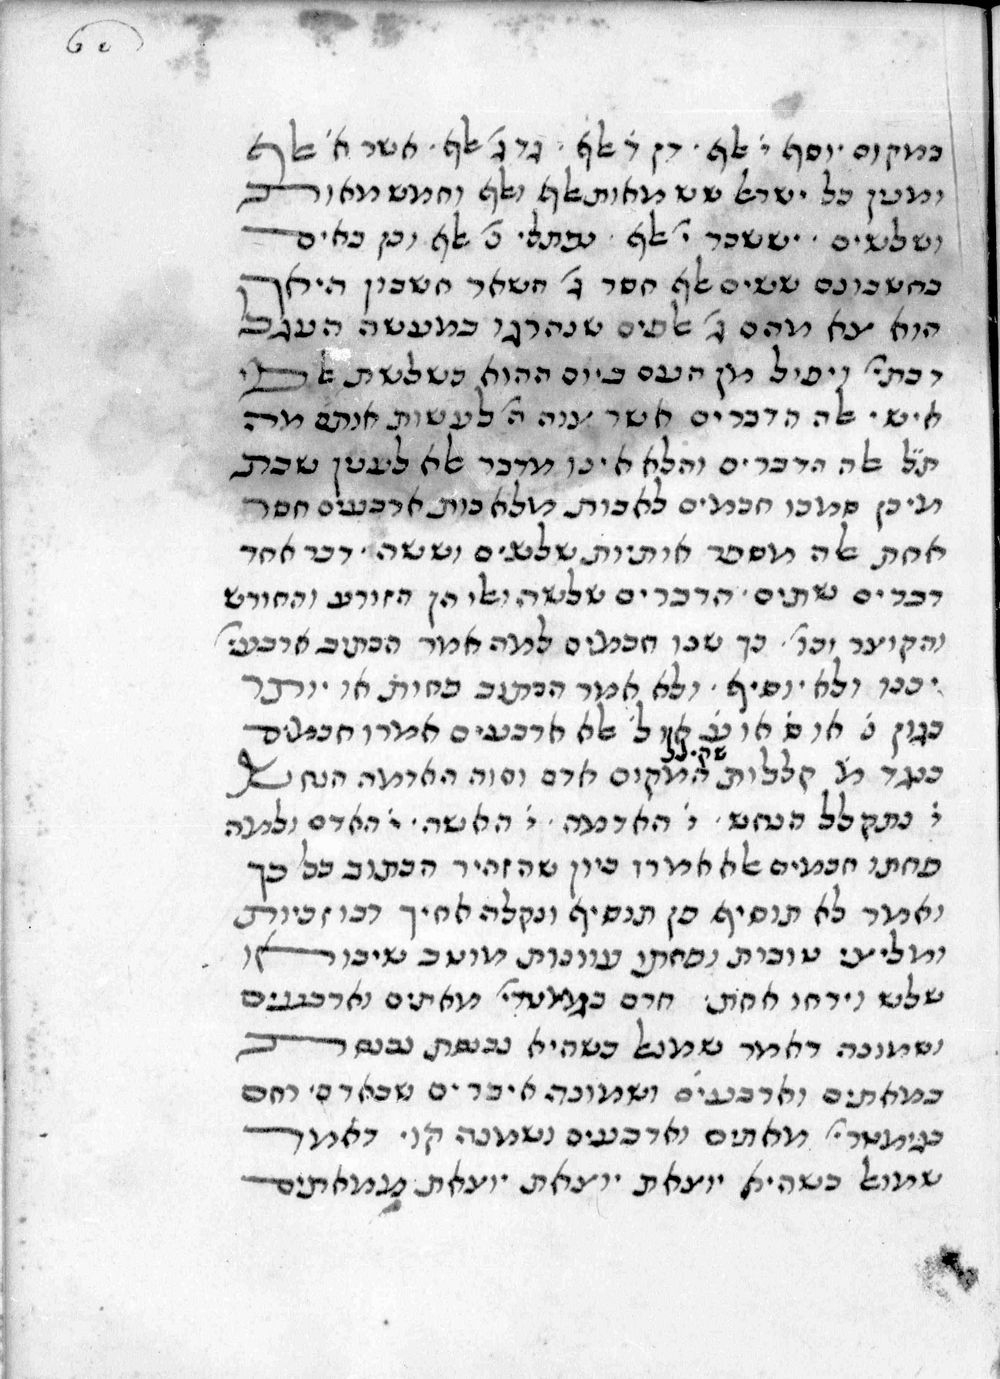 במקום יוסף י׳ אלף · דן ד׳ אלף · גד ג׳ אלף · אשר א׳ אלף
ומנין כל ישראל שש מאות אלף ואלף וחמש מאות
ושלשים · יששכר י׳ אלף · נפתלי ט׳ אלף וכן באים
בחשבונם ששים אלף חסר ג׳ תשאר חשבון היאך
הוא צא מהם ג׳ אלפים שנהרגו במעשה העגל
דכתי׳ ויפול מן העם ביום ההוא כשלשת אלפי
איש · אלה הדברים אשר צוה ה׳ לעשות אותם מה
ת״ל אלה הדברים והלא אינו מדבר אלא לענין שבת
מיכן סמכו חכמים לאבות מלאכות ארבעים חסר
אחת אלה מספר אותיות שלשים וששה · דבר אחד
דברים שתים · הדברים שלשה ואלו הן הזורע והחורש
והקוצר וכו׳ · כך שנו חכמים למה אמר הכתוב ארבעי׳
יכנו ולא יוסיף · ולא אמר הכתוב פחות או יותר
כגון נ׳ או ס׳ או ע׳ או ל׳ אלא ארבעים אמרו חכמים
כנגד מ׳ קללות שקילל המקום אדם וחוה האדמה הנחש
י׳ נתקלל הנחש · י׳ האדמה · י׳ האשה · י׳ האדם ולמה
פחתו חכמים אלא אמרו כיון שהזהיר הכתוב כל כך
ואמר לא תוסיף פן תוסיף ונקלה אחיך רבו זכיות
ומליצי טובות ופחתו עוונות מוטב שיכו או
שלש וידחו אחת · חרם בגמטרי׳ מאתים וארבעים
ושמונה דאמר שמואל כשהיא נכנסת נכנסת
במאתים וארבעים ושמונה איברים שבאדם · רחם
בגימטרי׳ מאתים וארבעים ושמנה הוי · דאמר
שמואל כשהיא יוצאת יוצאת יוצאת ממאתים